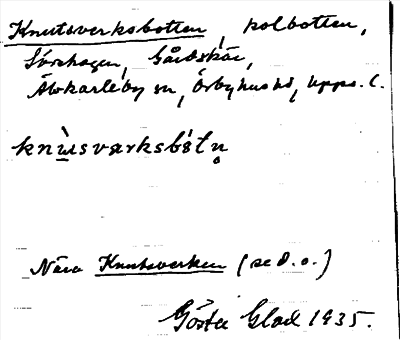 Knutsverksbotten, kolbotten,
Sörskogen, Gårdskär,
Älvkarleby sn, Örbyhus hd, Upps. l.
knùsvarksbótn̥
Nära Knutsverken (se d. o.)
Gösta Glad 1935.